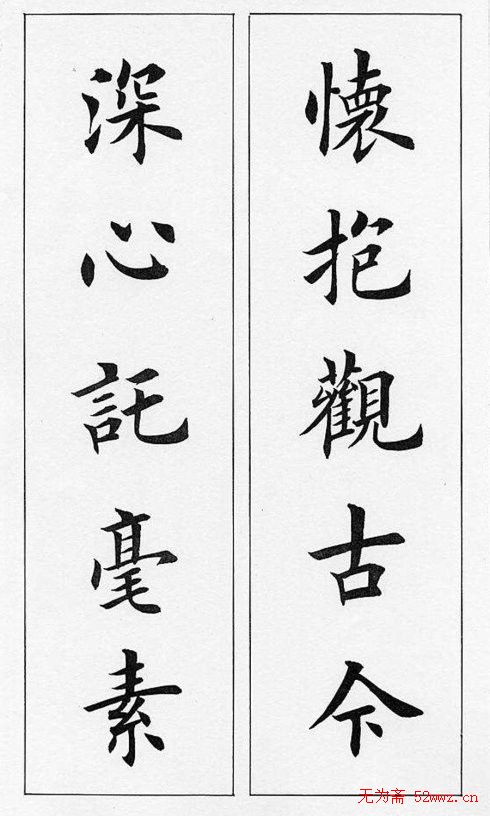 懷抱觀古今
深心託毫素
无为斋 52wwz.cn